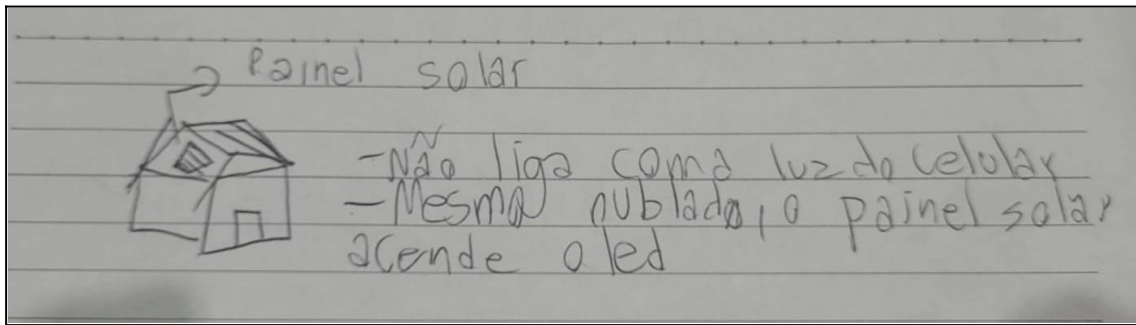 Painel solar
-Não liga com a luz do Celular
-Mesmo nublado, o painel solar
acende o led